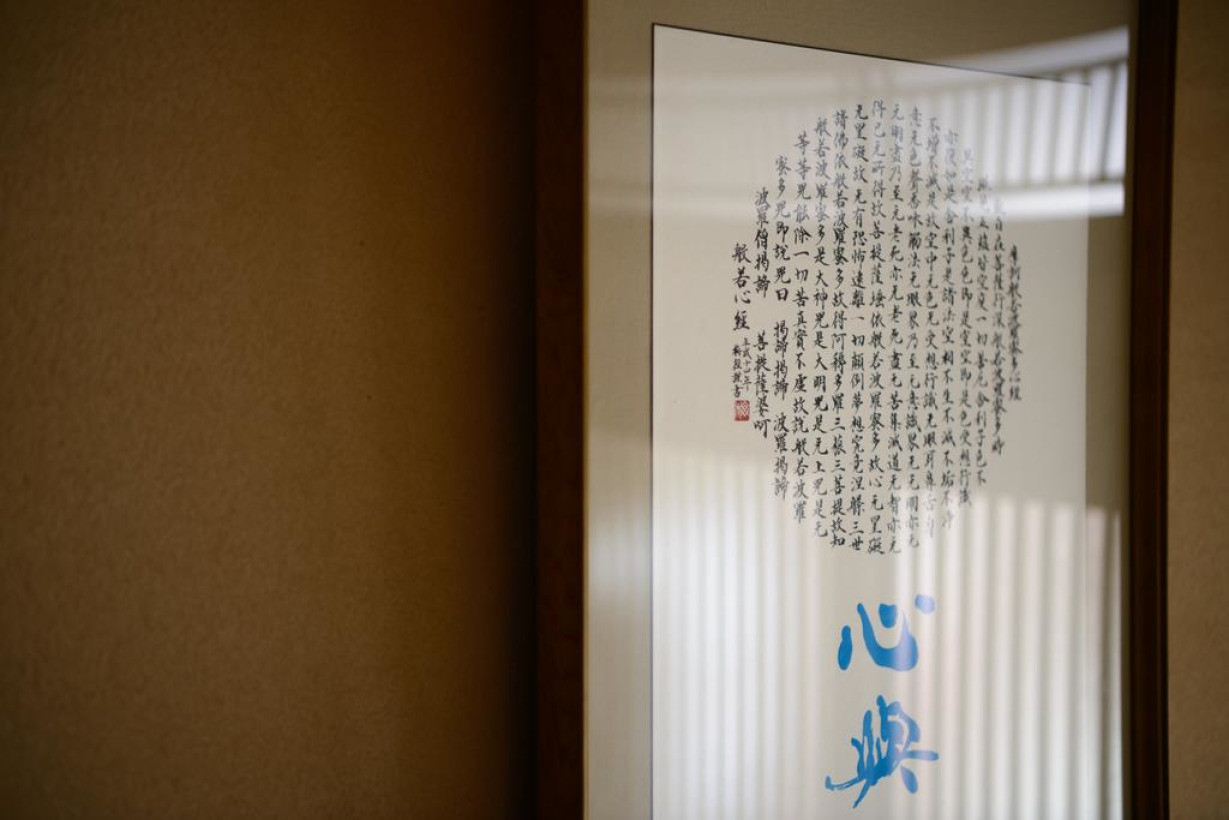 摩訶般若波羅蜜多心經
自在菩薩行深般若波羅蜜多時
見五蘊皆空度一切苦厄舍利子色不
異空空不異色色即是空空即是色受想行識
亦復如是舍利子是諸法空相不生不滅不垢不淨
不增不減是故空中无色无受想行識无眼耳鼻舌身
意无色聲香味觸法无眼界乃至无意識界无无明亦无
无明盡乃至无老死亦无老死盡无苦集滅道无智亦无
得已无所得故菩提薩埵依般若波羅蜜多故心无罣礙
无罣礙故无有恐怖遠離一切顛倒夢想究竟涅槃三世
諸佛依般若波羅蜜多故得阿耨多羅三藐三菩提故知
般若波羅蜜多是大神咒是大明咒是无上咒是无
等等咒能除一切苦真實不虛故說般若波羅
蜜多咒即說咒曰 揭諦揭諦 波羅揭諦
波羅僧揭諦 菩提薩婆呵
般若心經
心